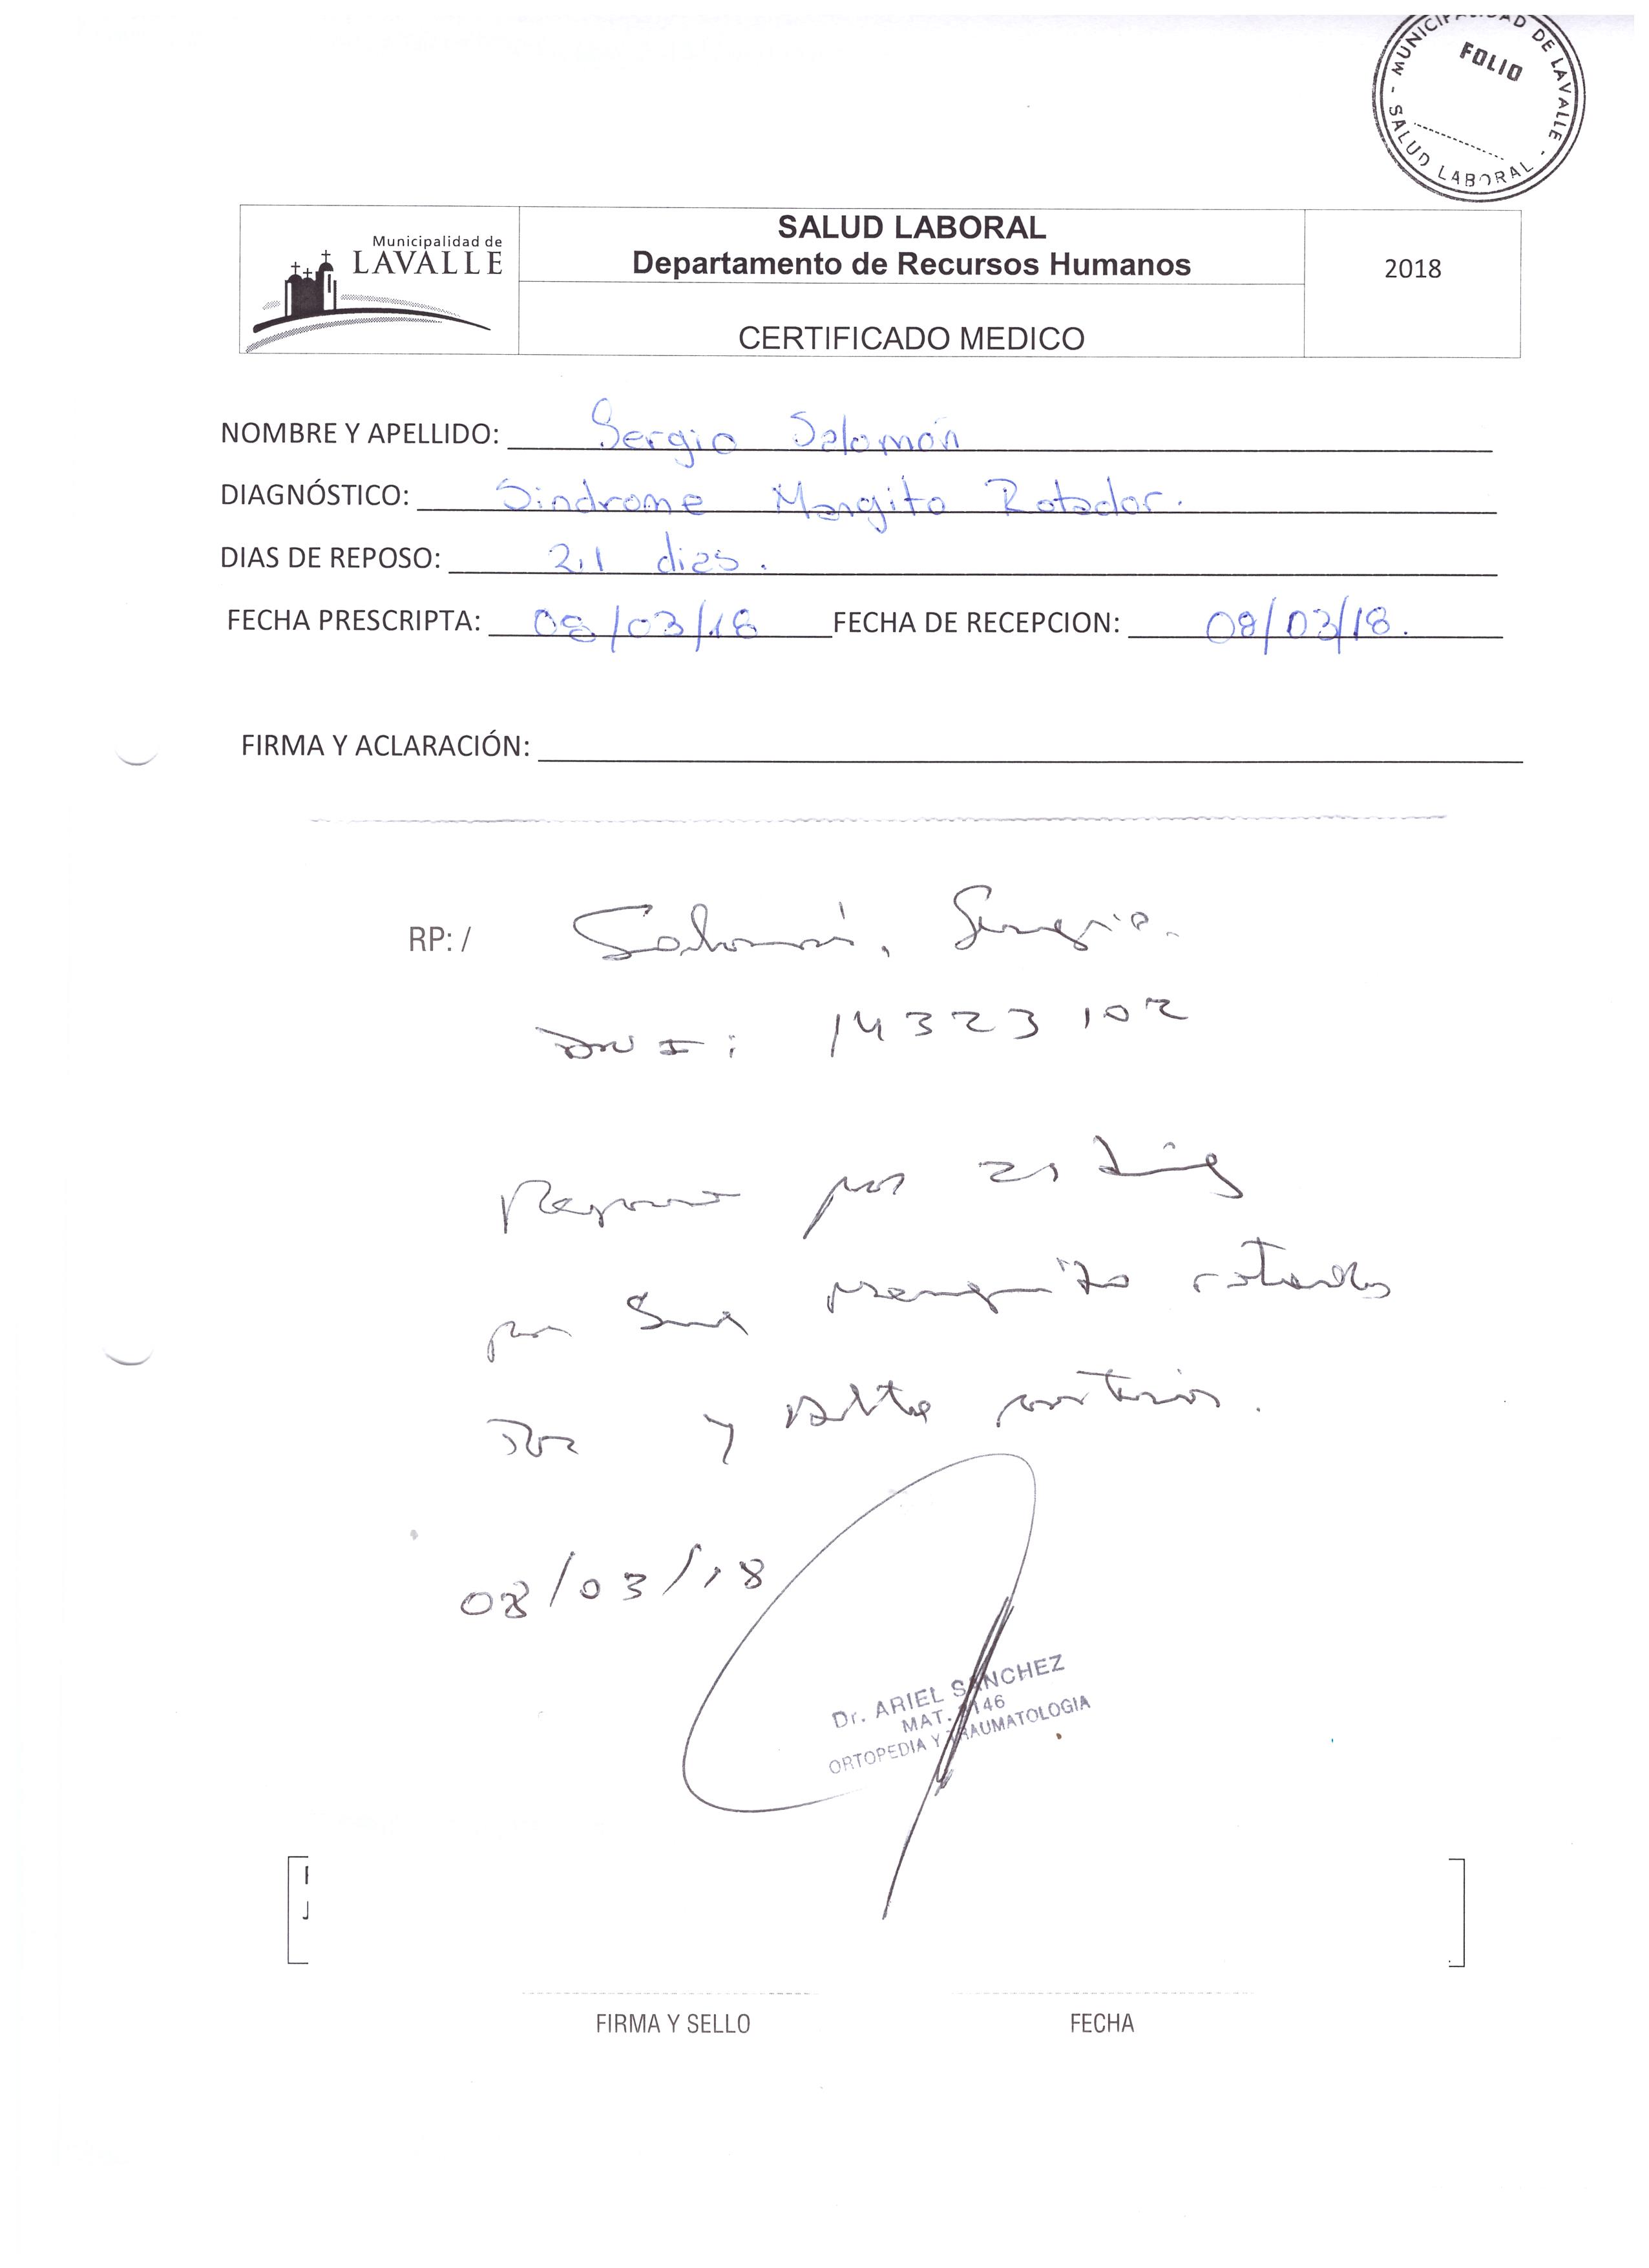 MUNICIPALIDAD DE LAVALLE - SALUD LABORAL -
FOLIO
Municipalidad de
LAVALLE
SALUD LABORAL
Departamento de Recursos Humanos
2018
CERTIFICADO MEDICO
NOMBRE Y APELLIDO: Sergio Salomón
DIAGNÓSTICO: Sindrome Mangito Rotador.
DIAS DE REPOSO: 21 dias.
FECHA PRESCRIPTA: 08/03/18 FECHA DE RECEPCION: 08/03/18.
FIRMA Y ACLARACIÓN:
RP: / Salomón, Sergio.
DNI: 14323102
Reposo por 21 días
por manguito rotador
y alta posterior.
08/03/18
Dr. ARIEL SANCHEZ
MAT. 146
ORTOPEDIA Y TRAUMATOLOGIA
FIRMA Y SELLO FECHA